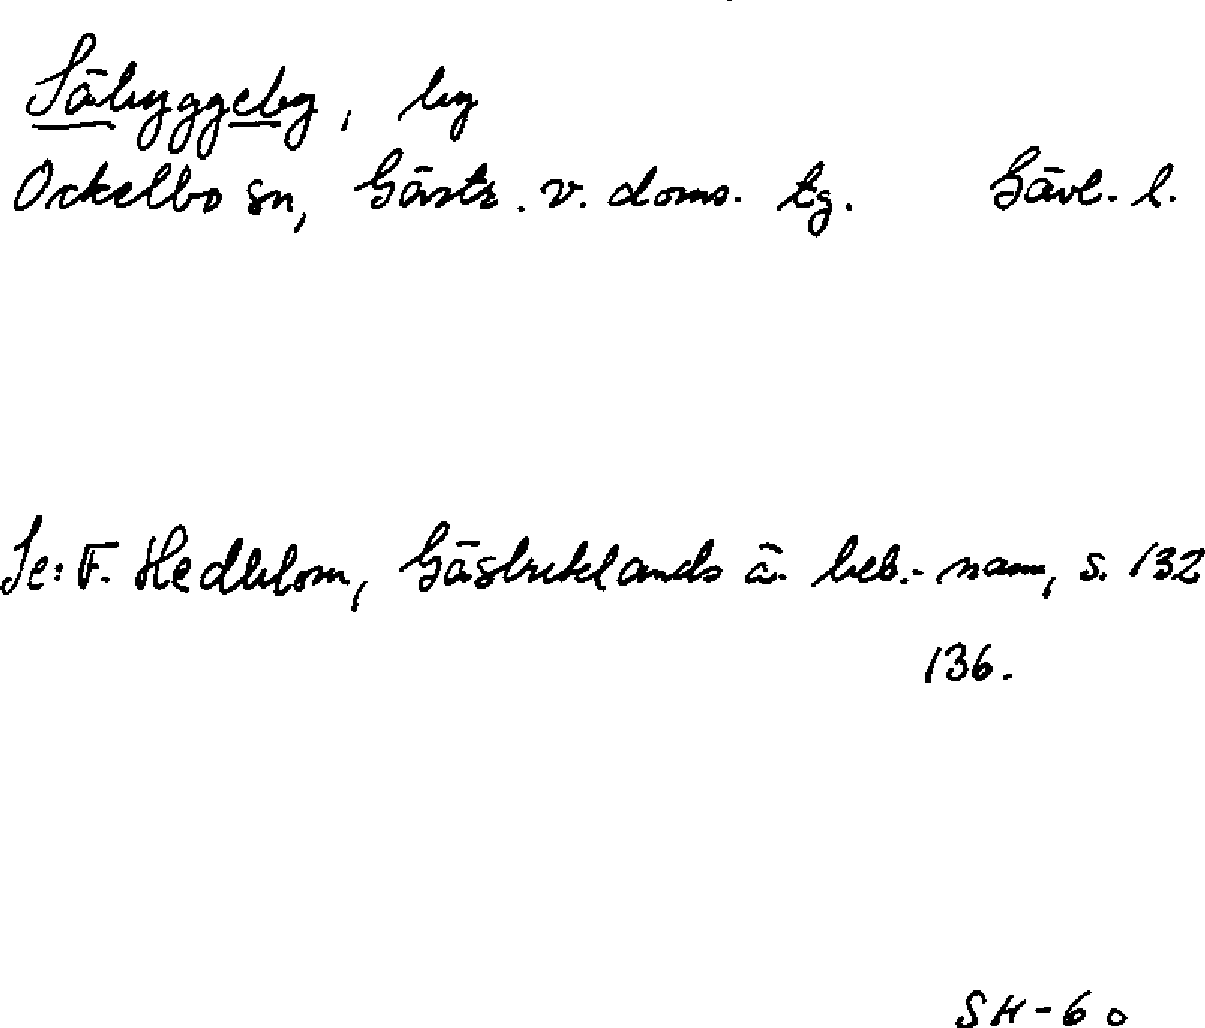 Säbyggeby, by
Ockelbo sn, Gästr. v. doms. tg. Gävl. l.
Se: F. Hedblom, Gästriklands ä. beb.-namn, s. 132
136.
SH-60